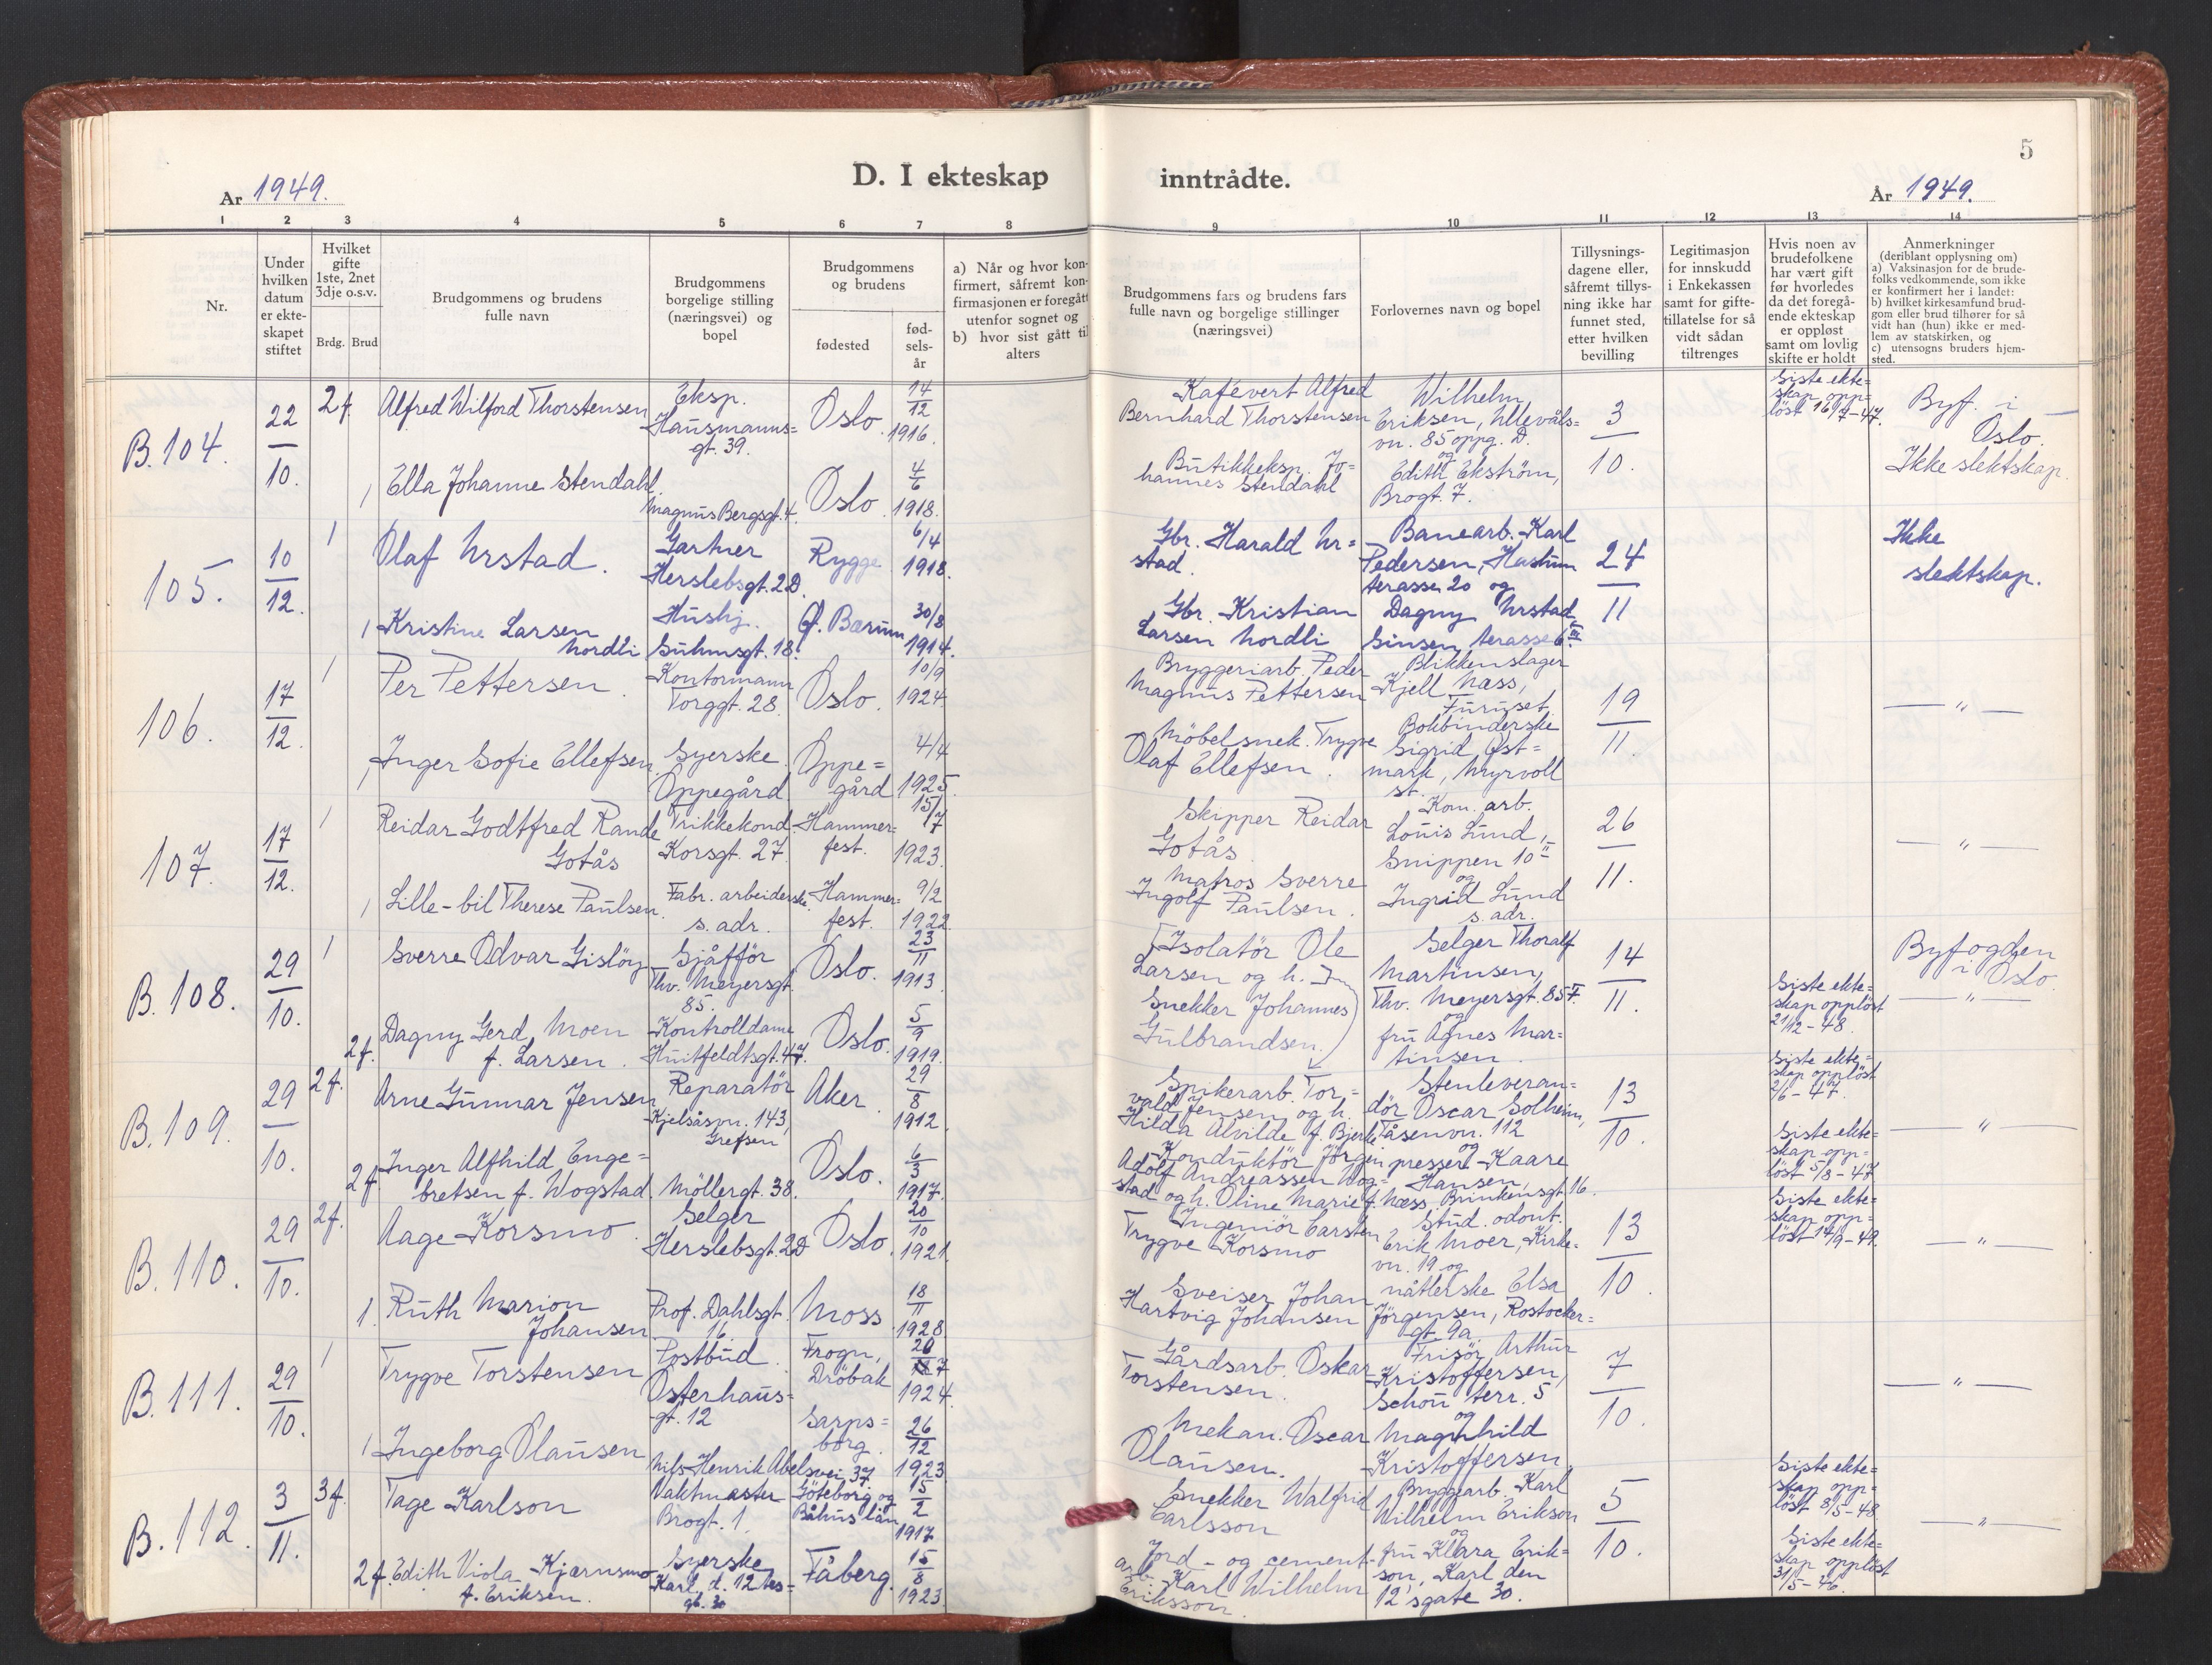 D. I ekteskap
inntrådte.
5
År 1949.
År 1949.
1 2 3 4 5 6 7 8
9 10 11 12 13 14
Nr.
Under hvilken datum er ekteskapet stiftet
Hvilket gifte 1ste, 2net 3dje o.s.v.
Brdg. Brud
Brudgommens og brudens fulle navn
Brudgommens borgelige stilling (næringsvei) og bopel
Brudgommens og brudens
fødested
fødselsår
a) Når og hvor konfirmert, såfremt konfirmasjonen er foregått utenfor sognet og
b) hvor sist gått til alters
Brudgommens fars og brudens fars fulle navn og borgelige stillinger (næringsvei)
Forlovernes navn og bopel
Tillysningsdagene eller, såfremt tillysning ikke har funnet sted, etter hvilken bevilling
Legitimasjon for innskudd i Enkekassen samt for giftetillatelse for så vidt sådan tiltrenges
Hvis noen av brudefolkene har vært gift før hvorledes da det foregående ekteskap er oppløst samt om lovlig skifte er holdt
Anmerkninger
(deriblant opplysning om)
a) Vaksinasjon for de brudefolks vedkommende, som ikke er konfirmert her i landet:
b) hvilket kirkesamfund brudgom eller brud tilhører for så vidt han (hun) ikke er medlem av statskirken, og
c) utensogns bruders hjemsted.
B. 104.
22/10.
2f. Alfred Wilford Thorstensen
Eksp.
Hausmanns=
gt. 39.
Oslo
14/12 1916.
1 Ella Johanne Stendahl
Magnus Bergsgt. 4.
Oslo
4/6 1918.
Kafévert Alfred
Bernhard Thorstensen
Butikkeksp. Jo=
hannes Stendahl
Wilhelm
Eriksen, Ullevåls=
vn. 85 oppg. D.
og
Edith Ekström,
Brogt. 7.
3/10.
Siste ekte=
skap opp=
löst 16/7-47.
Byf. i
Oslo.
Ikke slektskap.
105.
10/12.
1 Olaf Urstad.
Gartner
Herslebsgt. 2D.
Rygge
6/4 1918.
1 Kristine Larsen
Nordli
Hushj.
Suhmsgt. 18.
Ö. Bærum
30/8 1914.
Gbr. Harald Ur=
stad.
Gbr. Kristian
Larsen Nordli
Banearb. Karl
Pedersen,
terasse 20 og
Dagny Urstad,
Sinsen terasse 6 III.
24/11
Ikke
slektskap.
106.
17/12.
1 Per Pettersen.
Kontormann
Torggt. 28.
Oslo.
10/9 1924.
1 Inger Sofie Ellefsen
Syerske
Oppegård
Oppe=
gård
4/4 1925.
Bryggeriarb. Peder
Magnus Pettersen
Möbelsnek. Trygve
Olaf Ellefsen.
Blikkenslager
Kjell Næss,
Furuset
Bokbinderske
Sigrid Øst=
mark, Myrvoll
st.
19/11.
— " —
107.
17/12.
1 Reidar Godtfred Rande
Gotås
Trikkekond.
Korsgt. 27.
Hammer=
fest.
15/7 1923.
1 Lille-bil Therese Paulsen.
Fabr. arbeiderske
s. adr.
Hammer=
fest.
9/2 1922.
Skipper Reidar
Gotås
Matros Sverre
Ingolf Paulsen.
Kom. arb.
Louis Lund,
Snippen 10 II
og
Ingrid Lund
s. adr.
26/11.
— " —
B. 108.
29/10.
1 Sverre Odvar Gislöy
Sjåfför
Thv. Meyersgt.
85.
Oslo.
23/11 1913.
2f. Dagny Gerd Moen
f. Larsen.
Kontrolldame
Huitfeldtsgt. 47.
Oslo.
5/9 1919.
Isolatör Ole
Larsen og h.
Snekker Johannes
Gulbrandsen.
Selger Thoralf
Martinsen,
Thv. Meyersgt. 85 IV.
og
fru Agnes Mar=
tinsen.
14/11.
Siste ekte=
skap opplöst
21/12-48.
Byfogden
i Oslo.
— " —
B. 109.
29/10.
2f. Arne Gunnar Jensen
Reparatör
Kjelsåsvn. 143,
Grefsen
Aker.
29/8 1912.
2f. Inger Alfhild Enge=
bretsen f. Wogstad.
Möllergt. 38.
Oslo.
6/3 1917.
Spikerarb. Tor=
vald Jensen og h.
Hilda Alvilde f. Bjerke
Konduktör Jörgen
Adolf Andreassen Wog=
stad og h. Oline Marie f. Næss.
Stenleveran=
dör Oscar Solheim,
Tåsenvn. 112
og
presser Kaare
Hansen,
Brinkensgt. 16.
13/10.
Siste ekte=
skap opplöst
2/6-47.
Siste ekte=
skap opp=
löst 5/8-47
— " —
B. 110.
29/10.
2f. Aage Korsmo.
Selger
Herslebsgt. 2D
Oslo.
20/10 1921.
1. Ruth Marion
Johansen
Prof. Dahlsgt.
16.
Moss
18/11 1928.
Ingeniör Carsten
Trygve Korsmo
Sveiser Johan
Hartvig Johansen
Stud. odont.
Erik Moer, Kirke=
vn. 19 og
nåtlerske Elsa
Jörgensen, Rostocker=
gt. 9a.
13/10.
Siste ekte=
skap opp=
löst 14/9-49.
— " —
B. 111.
29/10.
1 Trygve Torstensen
Postbud.
Osterhaus=
gt. 12
Frogn,
Dröbak
20/7 1924.
1 Ingeborg Olausen
Nils Henrik Abelsvei 37
Sarps=
borg.
26/12 1923
Gårdsarb. Oskar
Torstensen.
Mekan. Oscar
Olausen.
Frisör Arthur
Kristoffersen,
Schou terr. 5
og
Magnhild
Kristoffersen.
7/10.
— " —
B. 112.
3/11.
3f. Tage Karlson
Vaktmaster
Brogt. 1.
Göteborg og
Båhus län
15/2 1917
2f. Edith Viola Kjærnsmo
f. Eriksen.
Syerske
Karl d. 12 tes=
gt. 30
Fåberg.
15/8 1923
Snekker Walfrid
Carlsson
Jord- og cement-
arb. Karl Wilhelm
Eriksson.
Bryggarb. Karl
Wilhelm Erikson
og
fru Klara Erik=
son, Karl den
12'sgate 30.
5/10.
Siste ekte=
skap opp=
löst 8/5-48
Siste ekte=
skap opplöst
31/5-46.
— " —